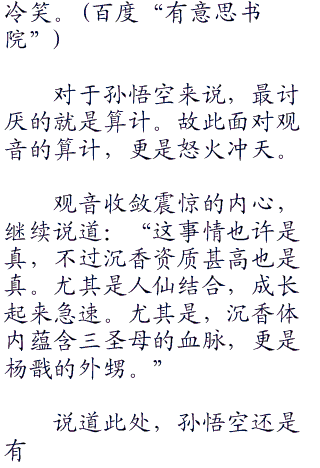 冷笑。（百度“有意思书
院”）
对于孙悟空来说，最讨
厌的就是算计。故此面对观
音的算计，更是怒火冲天。
观音收敛震惊的内心，
继续说道：“这事情也许是
真，不过沉香资质甚高也是
真。尤其是人仙结合，成长
起来急速。尤其是，沉香体
内蕴含三圣母的血脉，更是
杨戬的外甥。”
说道此处，孙悟空还是
有